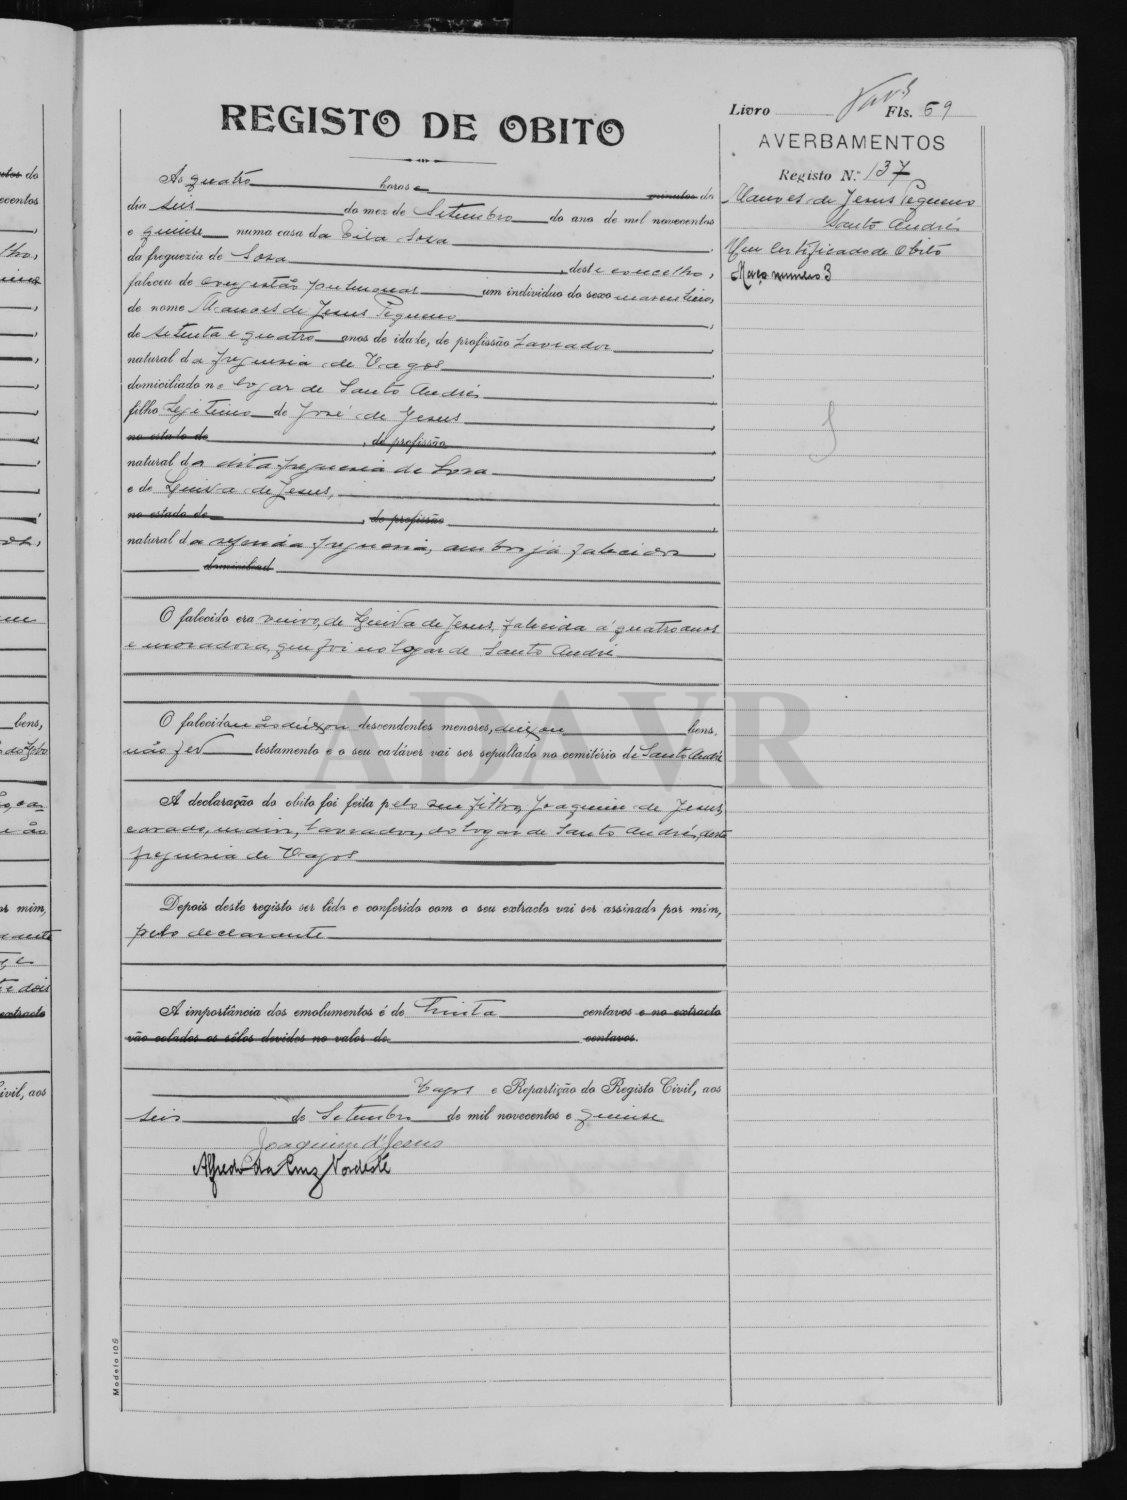 REGISTO DE OBITO
Livro Fls. 69
AVERBAMENTOS
Registo N.º 137
Manoel de Jesus Pequeno
Santo André
Um Certificado de Obito
Maço numero 3
As quatro horas e minutos do
dia seis do mez de Setembro do ano de mil novecentos
e quinse numa casa da Vila Soza,
da freguezia de Soza, deste concelho,
faleceu de congestão pulmonar um individuo do sexo masculino,
de nome Manoel de Jesus Pequeno,
de setenta e quatro anos de idade, de profissão Lavrador,
natural da freguesia de Vagos,
domiciliado no logar de Santo André,
filho legitimo de José de Jesus,
no estado de, de profissão,
natural da dita freguesia de Soza,
e de Luiza de Jesus,
no estado de, de profissão,
natural da referida freguesia, ambos já falecidos,
domiciliad
O falecido era viuvo, de Luiza de Jesus, falecida á quatro anos
e moradora, que foi no logar de Santo André
O falecido não deixou descendentes menores, deixou bens,
não fez testamento e o seu cadáver vai ser sepultado no cemitério de Santo André
A declaração do obito foi feita pelo seu filho, Joaquim de Jesus,
casado, maior, lavrador, do logar de Santo André, desta
freguesia de Vagos
Depois deste registo ser lido e conferido com o seu extracto vai ser assinado por mim,
pelo declarante
A importância dos emolumentos é de trinta centavos e no extracto
vão colados os sêlos devidos no valor de centavos.
Vagos e Repartição do Registo Civil, aos
seis de Setembro de mil novecentos e quinse
Joaquim d'Jesus
Alfredo da Cruz Nordeste
Modelo 105
ADAVR